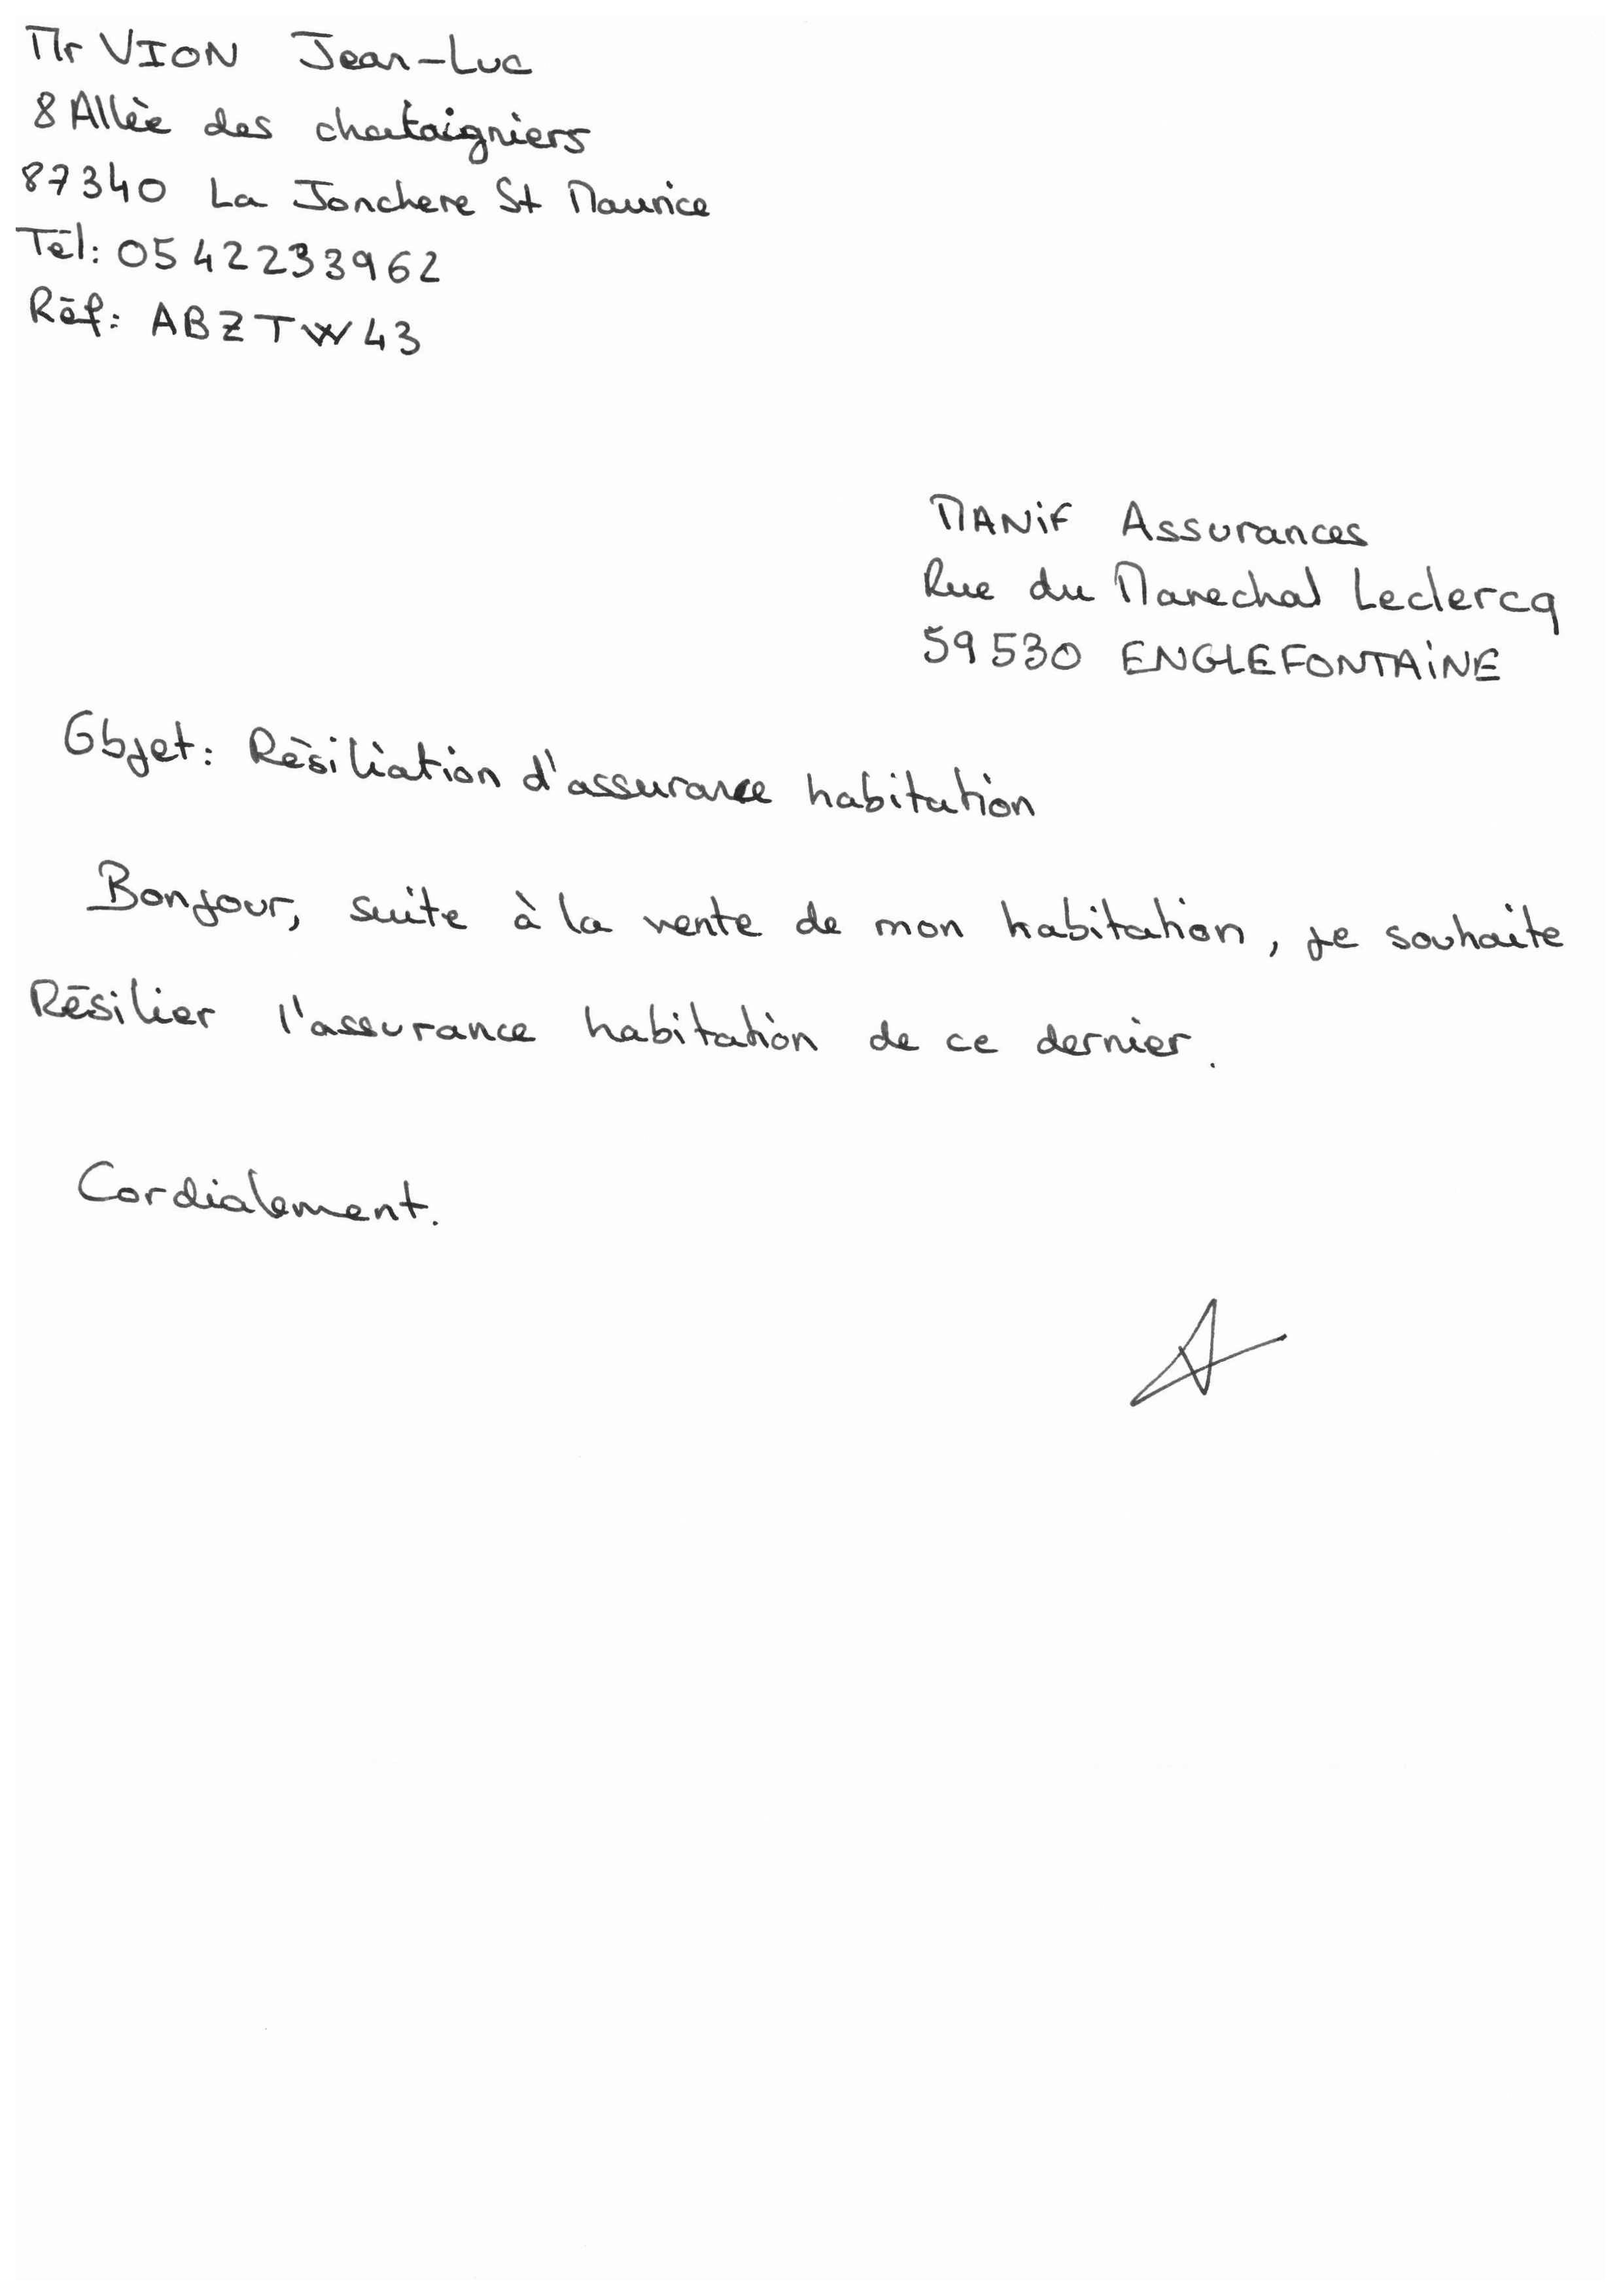 Mr VION Jean-Luc
8 Allée des chataigniers
87340 La Jonchere St Maurice
Tél: 0542233962
Réf: ABZTW43
MANiF Assurances
Rue du Marechal Leclercq
59530 ENGLEFONTAiNE
Objet: Résiliation d'assurance habitation
Bonjour, suite à la vente de mon habitation, je souhaite
Résilier l'assurance habitation de ce dernier.
Cordialement.